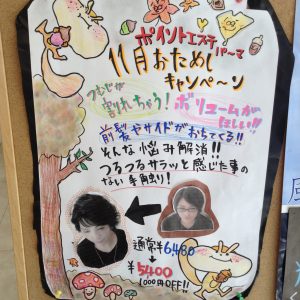 ポイントエステパーマ
11月おためし
キャンペーン
つむじが
割れちゃう！ボリュームが
ほしい!!
前髪やサイドがおちてくる!!
そんな悩み解消!!
つるつるサラッと感じた事の
ない手触り！
通常¥6,480
↓
¥5400
1000円OFF!!